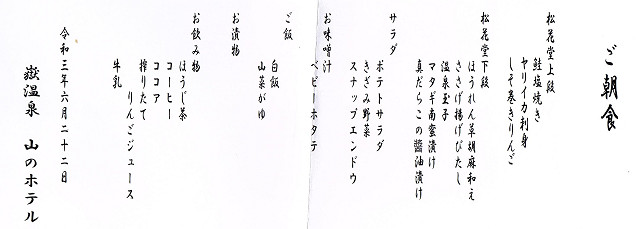 ご朝食
松花堂上段
鮭塩焼き
ヤリイカ刺身
しそ巻きりんご
松花堂下段
ほうれん草胡麻和え
ささげ揚げびたし
温泉玉子
マタギ南蛮漬け
真だらこの醤油漬け
サラダ
ポテトサラダ
きざみ野菜
スナップエンドウ
お味噌汁
ベビーホタテ
ご飯
白飯
山菜がゆ
お漬物
お飲み物
ほうじ茶
コーヒー
ココア
搾りたて
りんごジュース
牛乳
令和三年六月二十二日
嶽温泉 山のホテル